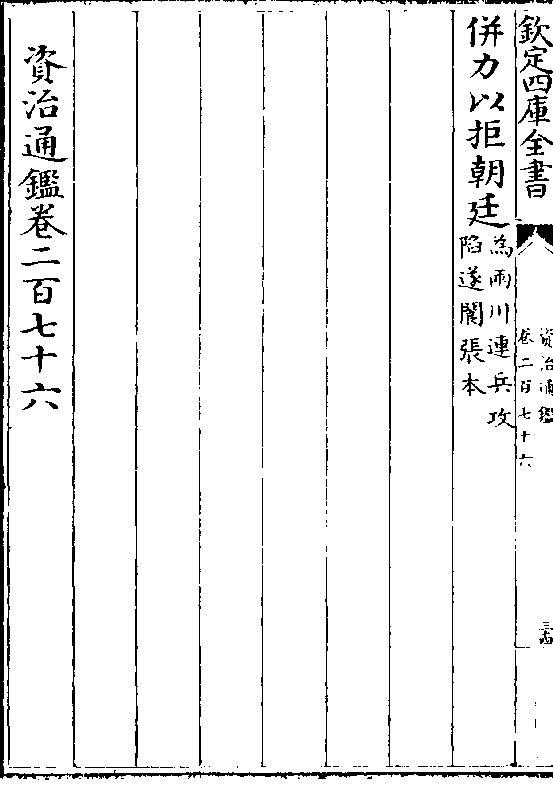 欽定四庫全書
資治通鑑
卷二百七十六
三十四
併力以拒朝廷
為兩川連兵攻
陷遂閬張本
資治通鑑卷二百七十六